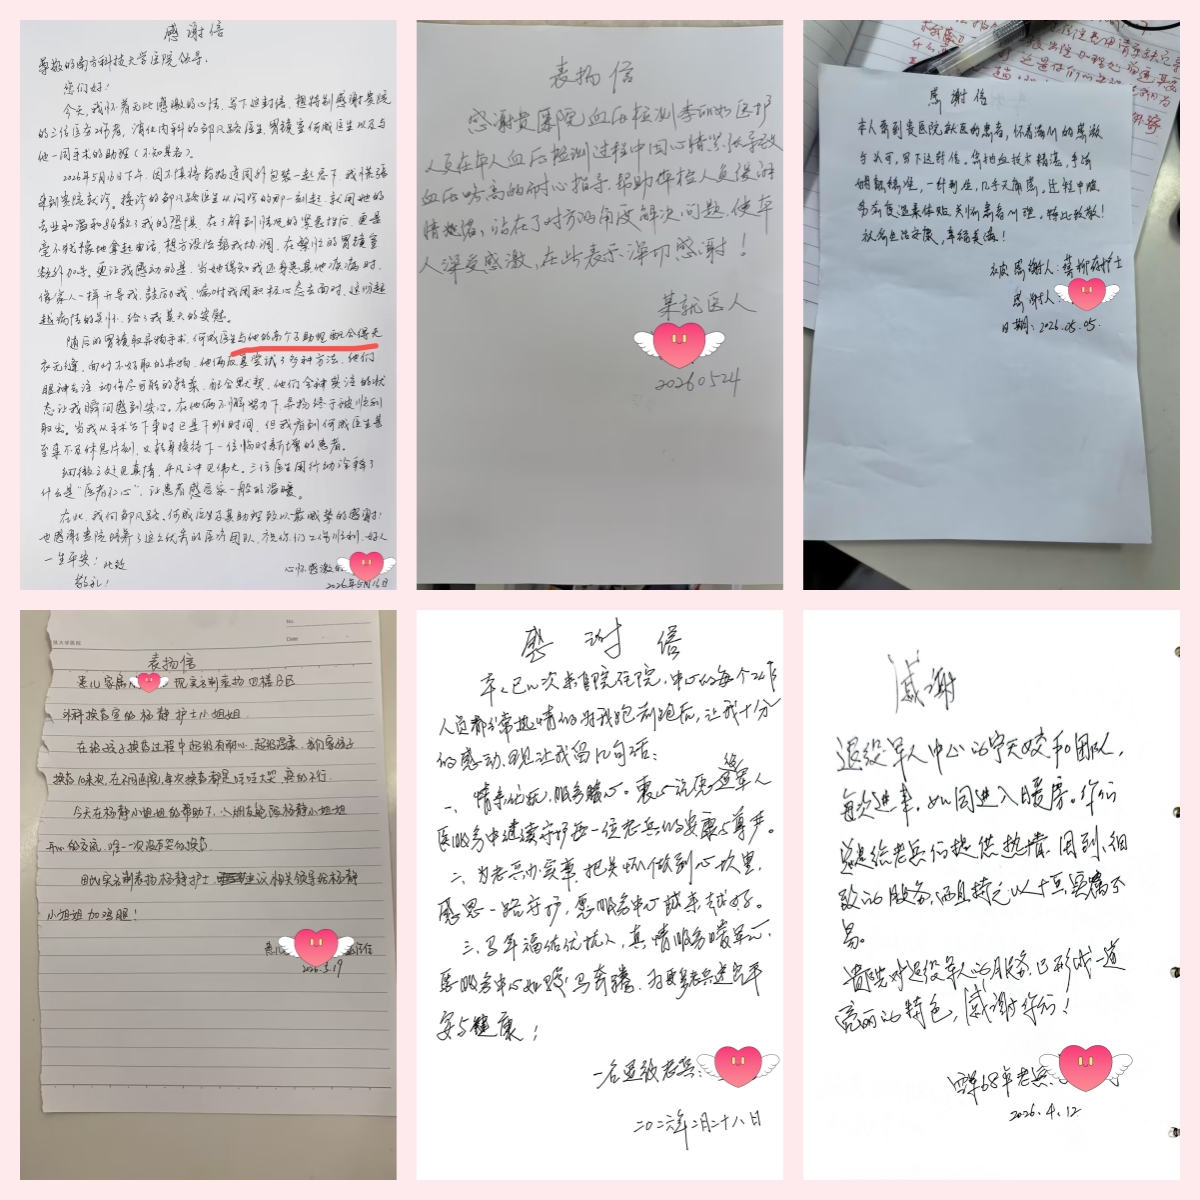 感谢信
尊敬的南方科技大学医院领导:
您们好!
今天,我怀着无比感激的心情,写下这封信,想特别感谢贵院
的三位医务工作者,消化内科的邹凡路医生,胃镜室何威医生以及与
他一同手术的助理(不知其名)。
2026年5月16日下午,因不慎将药物连同外包装一起吞下,我慌张
来到贵院就诊。接诊的邹凡路医生从问诊的那一刻起,就用她的
专业和温和驱散了我的恐惧。在了解到情况的紧急性后,更是
毫不犹豫地拿起电话,想方设法帮我协调,在繁忙的胃镜室
额外加号。更让我感动的是,当她得知我还身患其他疾病时,
像家人一样开导我,鼓励我,嘱咐我用积极心态去面对,这份超
越病情的关怀,给了我莫大的安慰。
随后的胃镜取异物手术,何威医生与他的高个子助理配合得天
衣无缝,面对不好取的异物,他俩反复尝试了多种方法,他们
眼神专注,动作尽可能的轻柔,配合默契,他们全神贯注的状
态让我瞬间感到安心。在他俩不懈努力下,异物终于被顺利
取出。当我从手术台下来时已是下班时间,但我看到何威医生甚
至来不及休息片刻,又转身接待下一位临时新增的患者。
细微之处见真情,平凡之中见伟大。三位医生用行动诠释了
什么是"医者仁心",让患者感受家一般的温暖。
在此,我向邹凡路、何威医生及其助理致以最诚挚的感谢!
也感谢贵院培养了这么优秀的医疗团队,祝你们工作顺利,好人
一生平安!此致
敬礼!
心怀感激的
2026年5月16日
表扬信
感谢贵医院血压检测李丽好医护
人员在本人血压检测过程中因心情紧张导致
血压略高的耐心指导,帮助体检人员缓解
情绪,站在了对方的角度解决问题,使本
人深受感激,在此表示深切感谢!
某就医人
20260524
感谢信
本人来到贵医院就医的患者,怀着满心的感激
与认可,写下这封信。您抽血技术精湛,手法
娴熟精准,一针到位,几乎无痛感。过程中服
务态度温柔体贴,关怀患者心理,特此致敬!
祝您生活安康,幸福美满!
被感谢人:蔡柳在护士
感谢人:
日期:2026.05.05.
No.
技大学医院
Date
表扬信
患儿家属 现实名制表扬四楼B区
外科换药室的杨静护士小姐姐
在给孩子换药过程中超级有耐心,超级温柔,我们家孩子
换药10来次,在不同医院,每次换药都是哇哇大哭,真的不行。
今天在杨静小姐姐的帮助下,小朋友能跟杨静小姐姐
开心的交流,唯一一次没有哭的换药。
因此实名制表扬杨静护士,建议相关领导给杨静
小姐姐加鸡腿!
2026.5.19
感谢信
本人已几次来贵院住院,中心的每个工作
人员都非常热情的为我跑前跑后,让我十分
的感动,现让我留几句话:
一、情系伤兵,服务暖心。衷心祝愿退役军人
医服务中心继续守护每一位老兵的安康与尊严。
二、为老兵办实事,把关怀做到心坎里,
感恩一路守护,愿服务中心越来越好。
三、马年福佑优抚人,真情服务暖军心,
医服务中心如骏马奔腾,为更多老兵送去平
安与健康!
一名退役老兵:
二〇二六年二月二十八日
感谢
退役军人中心的宁天姣和团队,
每次进来,如同进入暖房。你们
总是给老兵们提供热情、周到、细
致的服务,而且持之以十恒,实属不
易。
贵院对退役军人的服务,已形成一道
亮丽的特色,感谢你们!
68年老兵:
2026.4.12